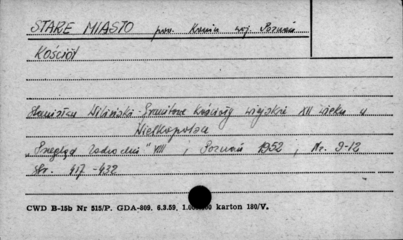 STARE MIASTO pow. Konin woj. Poznań
Kościół
Stanisław Wiliński Granitowe Kościoły wiejskie XII wieku w
Wielkopolsce
„Przegląd Zachodni" VIII, Poznań 1952, Nr. 9-12
Str. 417-432
CWD B-15b Nr 515/P. GDA-809. 6.3.59. karton 180/V.